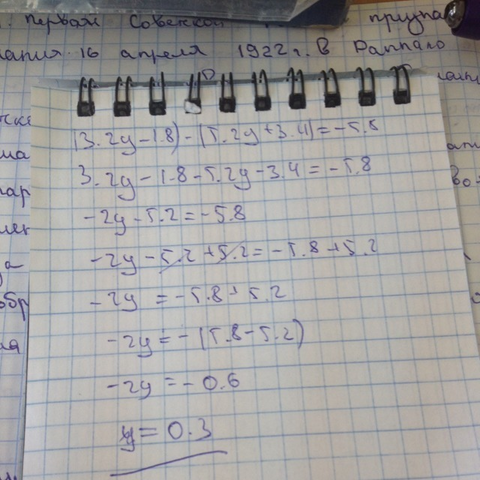 Первой Советской призна
16 апреля 1922г. в Раппало
(3.2y-1.8)-(5.2y+3.4)=-5.8
3.2y-1.8-5.2y-3.4=-5.8
-2y-5.2=-5.8
-2y-5.2+5.2=-5.8+5.2
-2y=-5.8+5.2
-2y=-(5.8-5.2)
-2y=-0.6
y=0.3